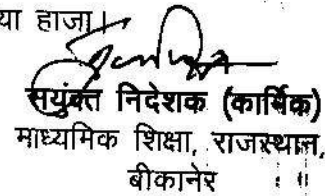 या हाजा।
सयुंक्त निदेशक (कार्मिक)
माध्यमिक शिक्षा, राजस्थान,
बीकानेर